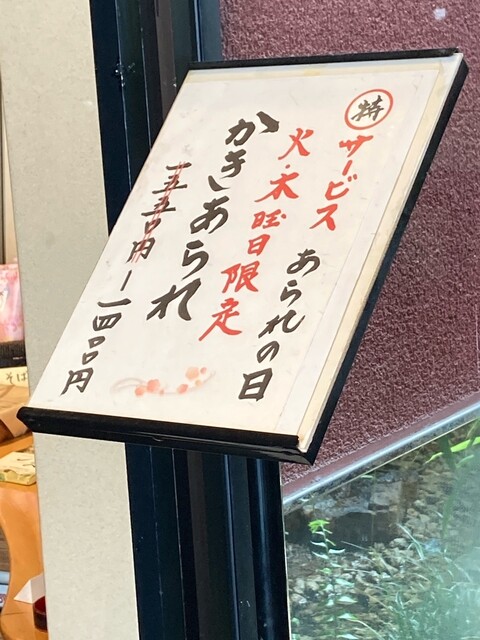 特
サービス
あられの日
火・木曜日限定
かきあられ
一五五〇円
一四〇〇円
そば